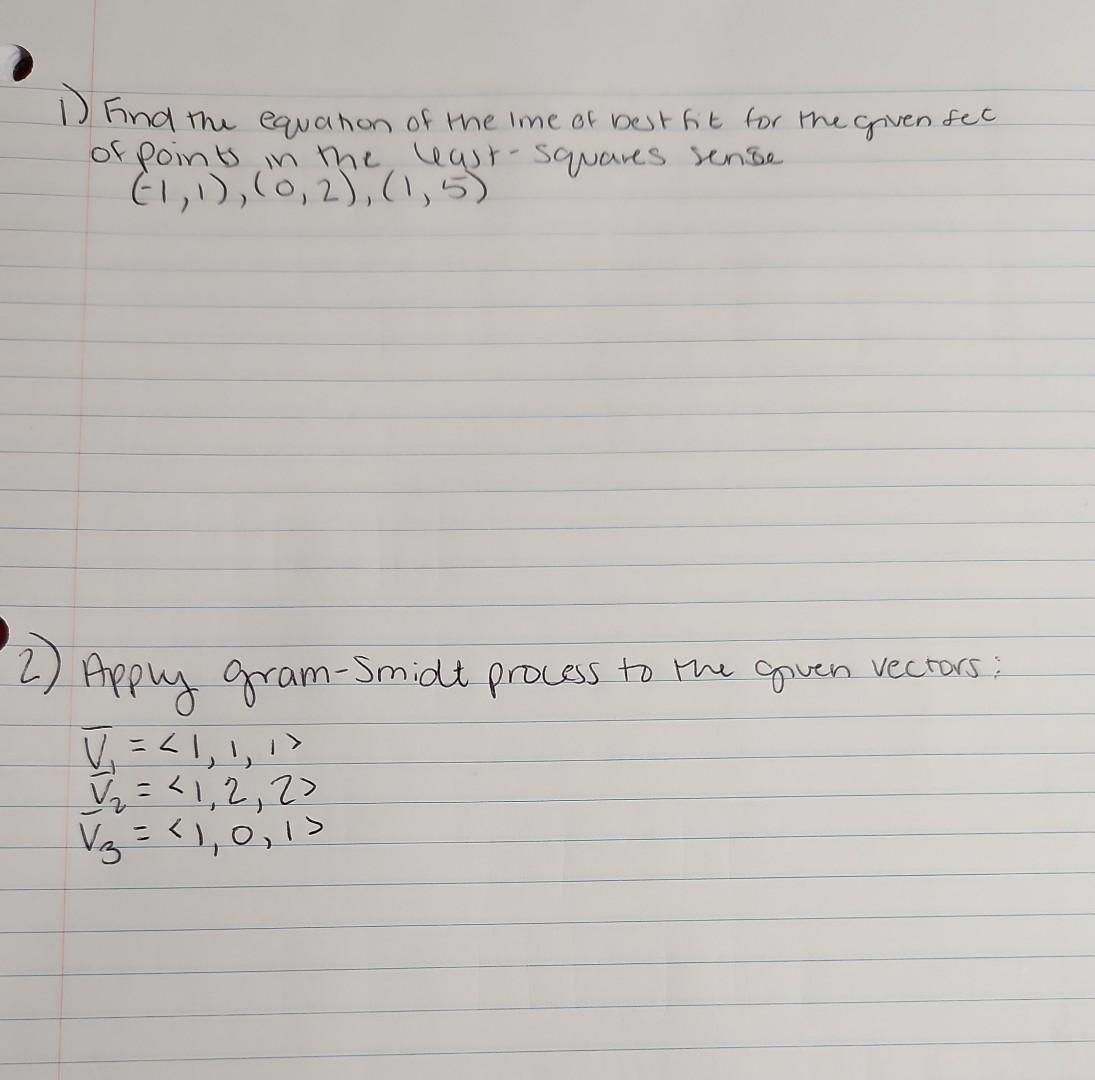 1) Find the equation of the line of best fit for the given set
of points in the least-squares sense
(-1,1),(0,2),(1,5)
2) Apply gram-Smidt process to the given vectors:
V̅₁ = <1, 1, 1>
V̅₂ = <1, 2, 2>
V̅₃ = <1, 0, 1>